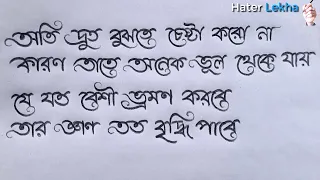 Hater Lekha
অতি দ্রুত বুঝতে চেষ্টা করো না
কারণ তাতে অনেক ভুল থেকে যায়
যে যত বেশী ভ্রমণ করবে
তার জ্ঞান তত বৃদ্ধি পাবে